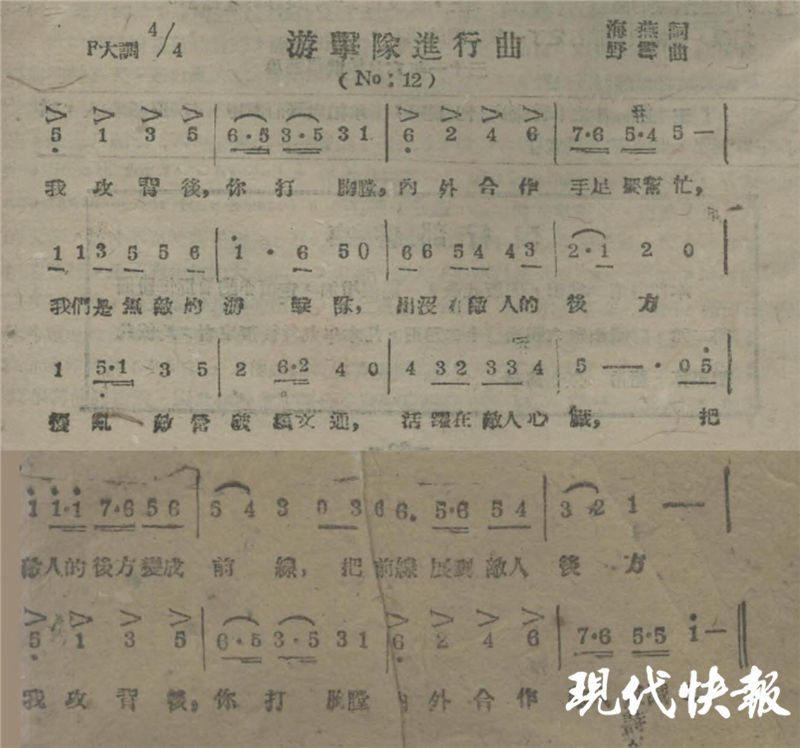 F大調 4/4 游擊隊進行曲 海燕 詞
(No:12) 野雲 曲
5 1 3 5 | 6·5 3·5 3 1 | 6 2 4 6 | 7·6 #5·4 5 — |
我攻背後,你打胸膛,內外合作手足緊幫忙,
1 1 3 5 5 6 | 1 · 6 5 0 | 6 6 5 4 4 3 | 2·1 2 0
我們是無敵的游擊隊,出沒在敵人的後方
1 5·1 3 5 | 2 6·2 4 0 | 4 3 2 3 3 4 | 5 — · 0 5 |
擾亂敵營破壞交通,活躍在敵人心臟,把
1 1·1 7·6 5 6 | 5 4 3 0 3 | 6 6. 5·6 5 4 | 3 2 1 — |
敵人的後方變成前線,把前線展到敵人後方
5 1 3 5 | 6·5 3·5 3 1 | 6 2 4 6 | 7·6 5·5 1 — ‖
我攻背後,你打胸膛內外合作
現代快報